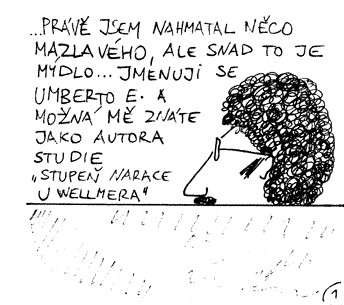 ...PRÁVĚ JSEM NAHMATAL NĚCO
MAZLAVÉHO, ALE SNAD TO JE
MÝDLO... JMENUJI SE
UMBERTO E. A
MOŽNÁ MĚ ZNÁTE
JAKO AUTORA
STUDIE
„STUPEŇ NARACE
U WELLMERA"
1